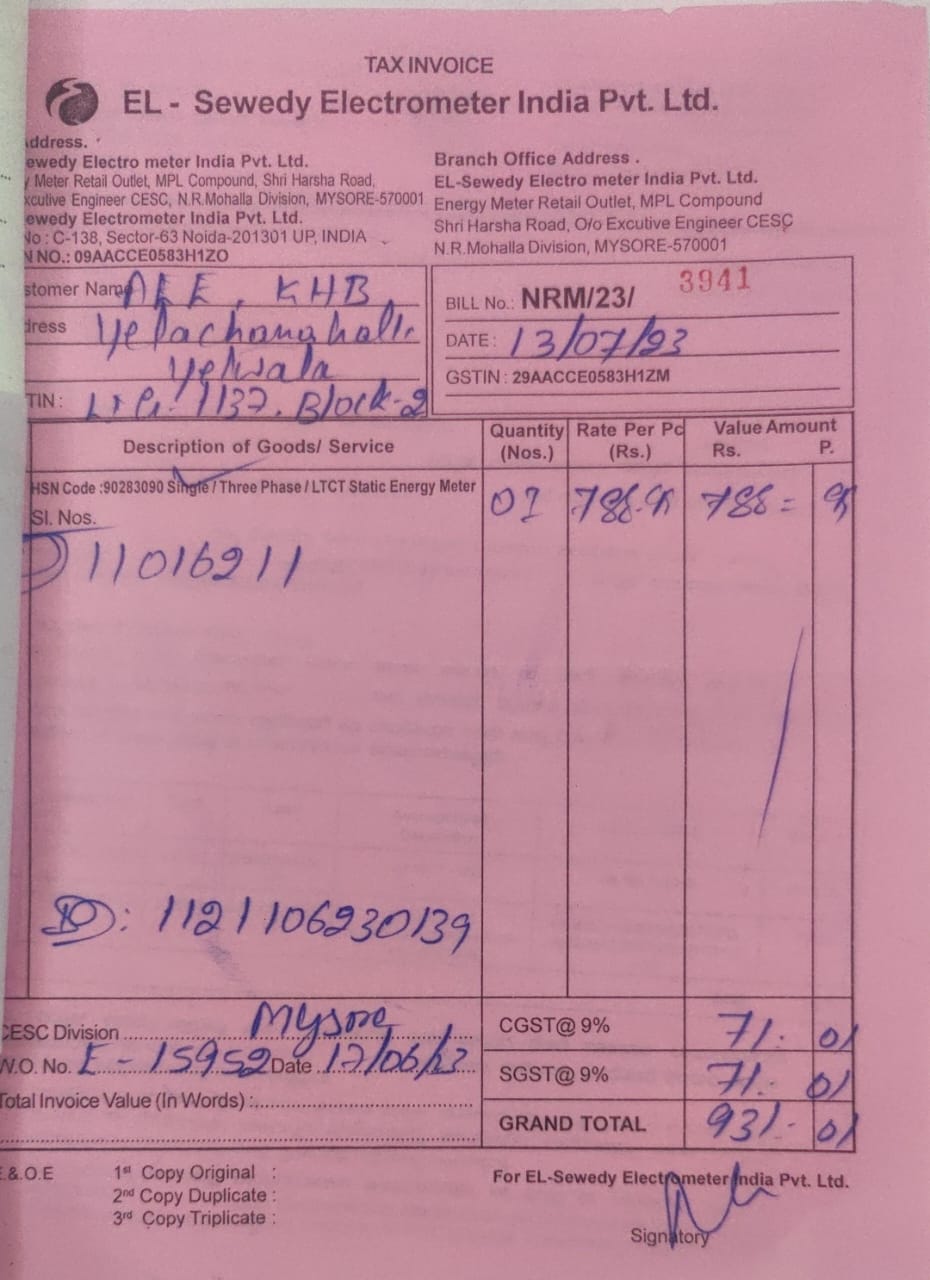 TAX INVOICE
EL - Sewedy Electrometer India Pvt. Ltd.
ddress.
ewedy Electro meter India Pvt. Ltd.
Meter Retail Outlet, MPL Compound, Shri Harsha Road,
xcutive Engineer CESC, N.R.Mohalla Division, MYSORE-570001
ewedy Electrometer India Pvt. Ltd.
No : C-138, Sector-63 Noida-201301 UP, INDIA
N NO.: 09AACCE0583H1ZO
Branch Office Address .
EL-Sewedy Electro meter India Pvt. Ltd.
Energy Meter Retail Outlet, MPL Compound
Shri Harsha Road, O/o Excutive Engineer CESC
N.R.Mohalla Division, MYSORE-570001
stomer Name AEE, KHB,
dress Yelachanahalli
Yelwala
TIN : 1137. Block-2
BILL No.: NRM/23/ 3941
DATE : 13/07/23
GSTIN : 29AACCE0583H1ZM
Description of Goods/ Service Quantity (Nos.) Rate Per Pc (Rs.) Value Amount Rs. P.
HSN Code :90283090 Single / Three Phase / LTCT Static Energy Meter 01 788. 788=
Sl. Nos.
1) 11016211
ID: 1121106230139
CESC Division Mysore CGST@ 9% 71. 01
W.O. No. E-15952 Date 17/06/23
SGST@ 9% 71. 01
Total Invoice Value (In Words) :
GRAND TOTAL 931- 01
E.&.O.E 1st Copy Original :
2nd Copy Duplicate :
3rd Copy Triplicate :
For EL-Sewedy Electrometer India Pvt. Ltd.
Signatory